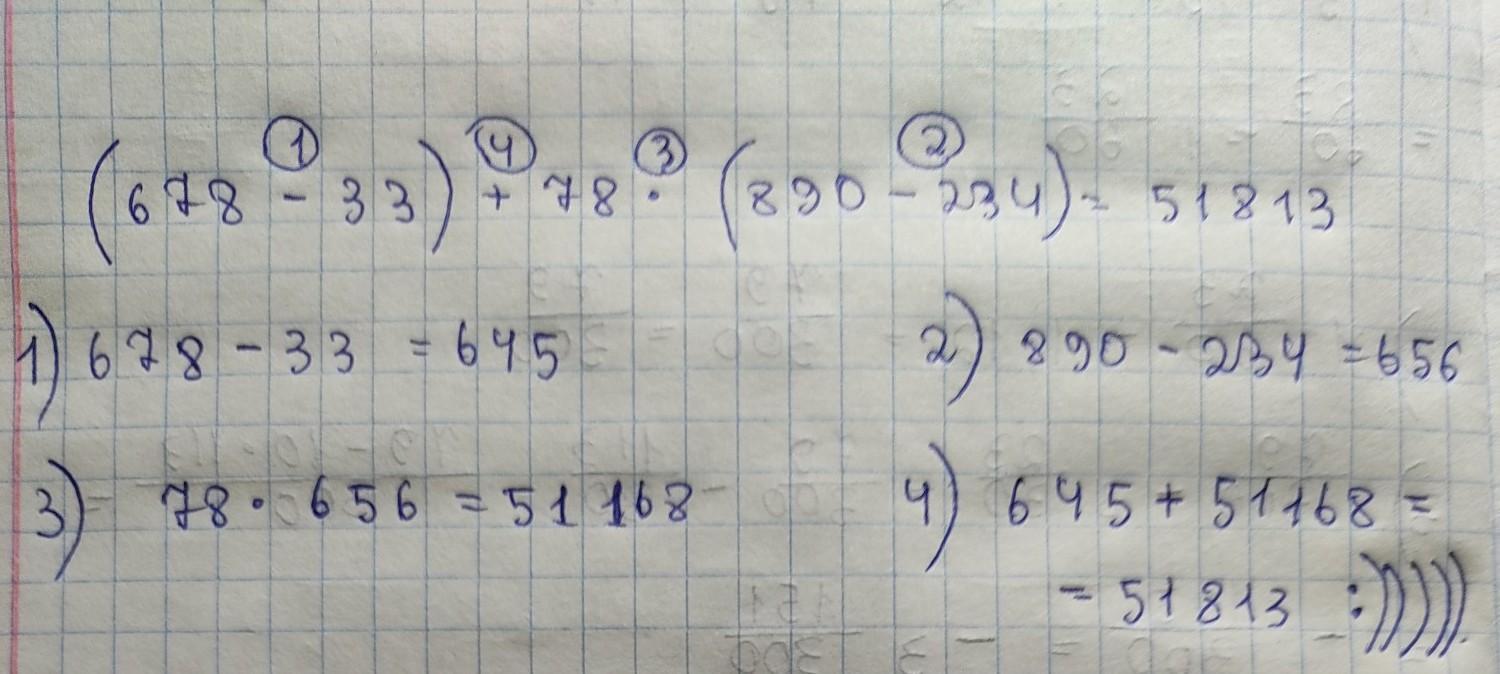 ① ④ ③ ②
(678 - 33) + 78 · (890 - 234) = 51813
1) 678 - 33 = 645 2) 890 - 234 = 656
3) 78 · 656 = 51168 4) 645 + 51168 =
= 51813 :)))))